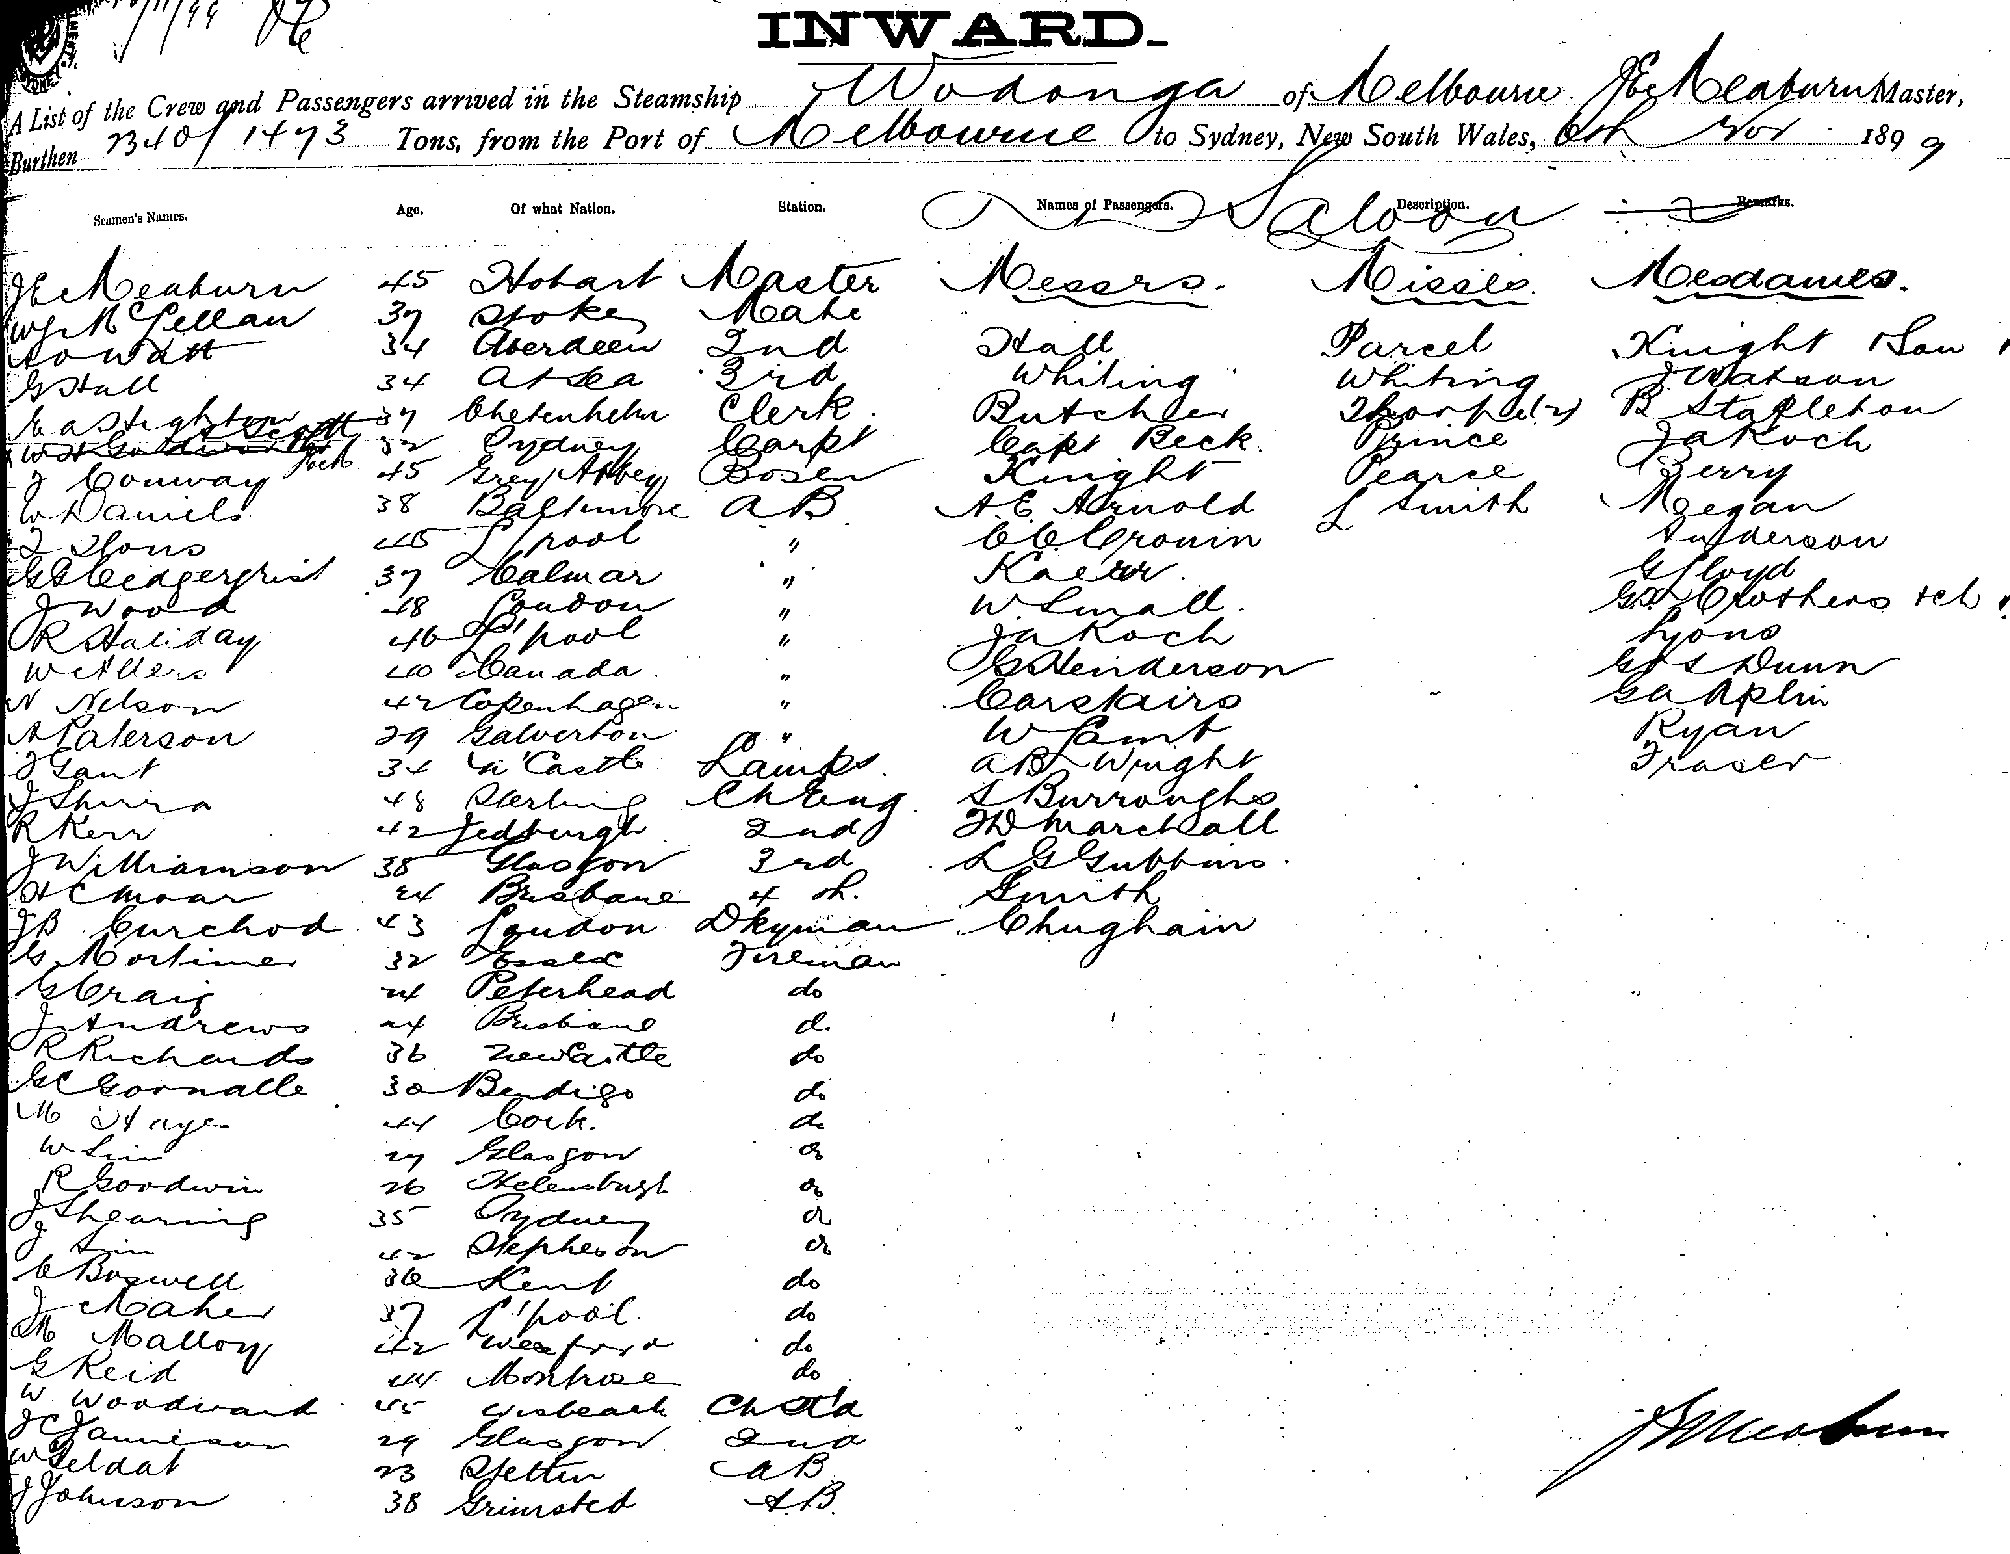 INWARD.
A List of the Crew and Passengers arrived in the Steamship Wodonga of Melbourne J E Meaburn Master,
Burthen 2340/1473 Tons, from the Port of Melbourne to Sydney, New South Wales, 6th Nov 1899
Seamen's Names. Age. Of what Nation. Station. Names of Passengers. Description. Remarks.
Saloon
J E Meaburn 45 Hobart Master Messrs. Misses. Mesdames.
McLellan 37 Stoke Mate
A O Watt 34 Aberdeen 2nd Hall Parcel Knight & Son
G Hall 34 At Sea 3rd Whiting Whiting J Watson
37 Clerk. Butcher Thorpe (2) B Stapleton
32 Sydney Carpt Capt Beck. Prince J A Koch
J Conway 45 Grey Abbey Bosen Knight Pearce Berry
W Daniels 38 Baltimore A B A E Arnold L Smith Meegan
45 L'pool " C C Cronin Anderson
37 Calmar " G Lloyd
J Wood 48 London " W Small. Crothers & ch
R Haliday 46 L'pool " J A Koch Lyons
W Allers 40 Canada " G Henderson Dunn
N Nelson 42 Copenhagen " Carstairs G A Aplin
A Paterson 29 Galverton " W Ryan
J Gant 34 N'Castle Lamps. A B Wright Fraser
J Shirra 48 Sterling Ch Eng. S Burroughs
R Kerr 42 Jedburgh 2nd F W Marshall
J Williamson 38 Glasgow 3rd L G Gubbins.
H C Moar 24 Brisbane 4th. Smith
J B Curchod 43 London Dkyman Chughain
G Mortimer 32 Essex Fireman
G Craig 24 Peterhead do
J Andrews 24 Brisbane do
R Richards 36 Newcastle do
G C Gornalle 30 Bendigo do
M Hayes 44 Cork. do
W Sim 27 Glasgow do
R Goodwin 26 Helensburgh do
J Shearing 35 Sydney do
J Sim 42 Stepheson do
C Boswell 36 Kent do
J Maher 37 L'pool. do
M Malloy 42 Wexford do
G Reid 44 Montrose do
W Woodward 45 Wisbeach Ch Std
J C Jamieson 29 Glasgow 2nd
W Geldat 23 Stettin A B
J Johnson 38 Grimsted A.B.
J E Meaburn